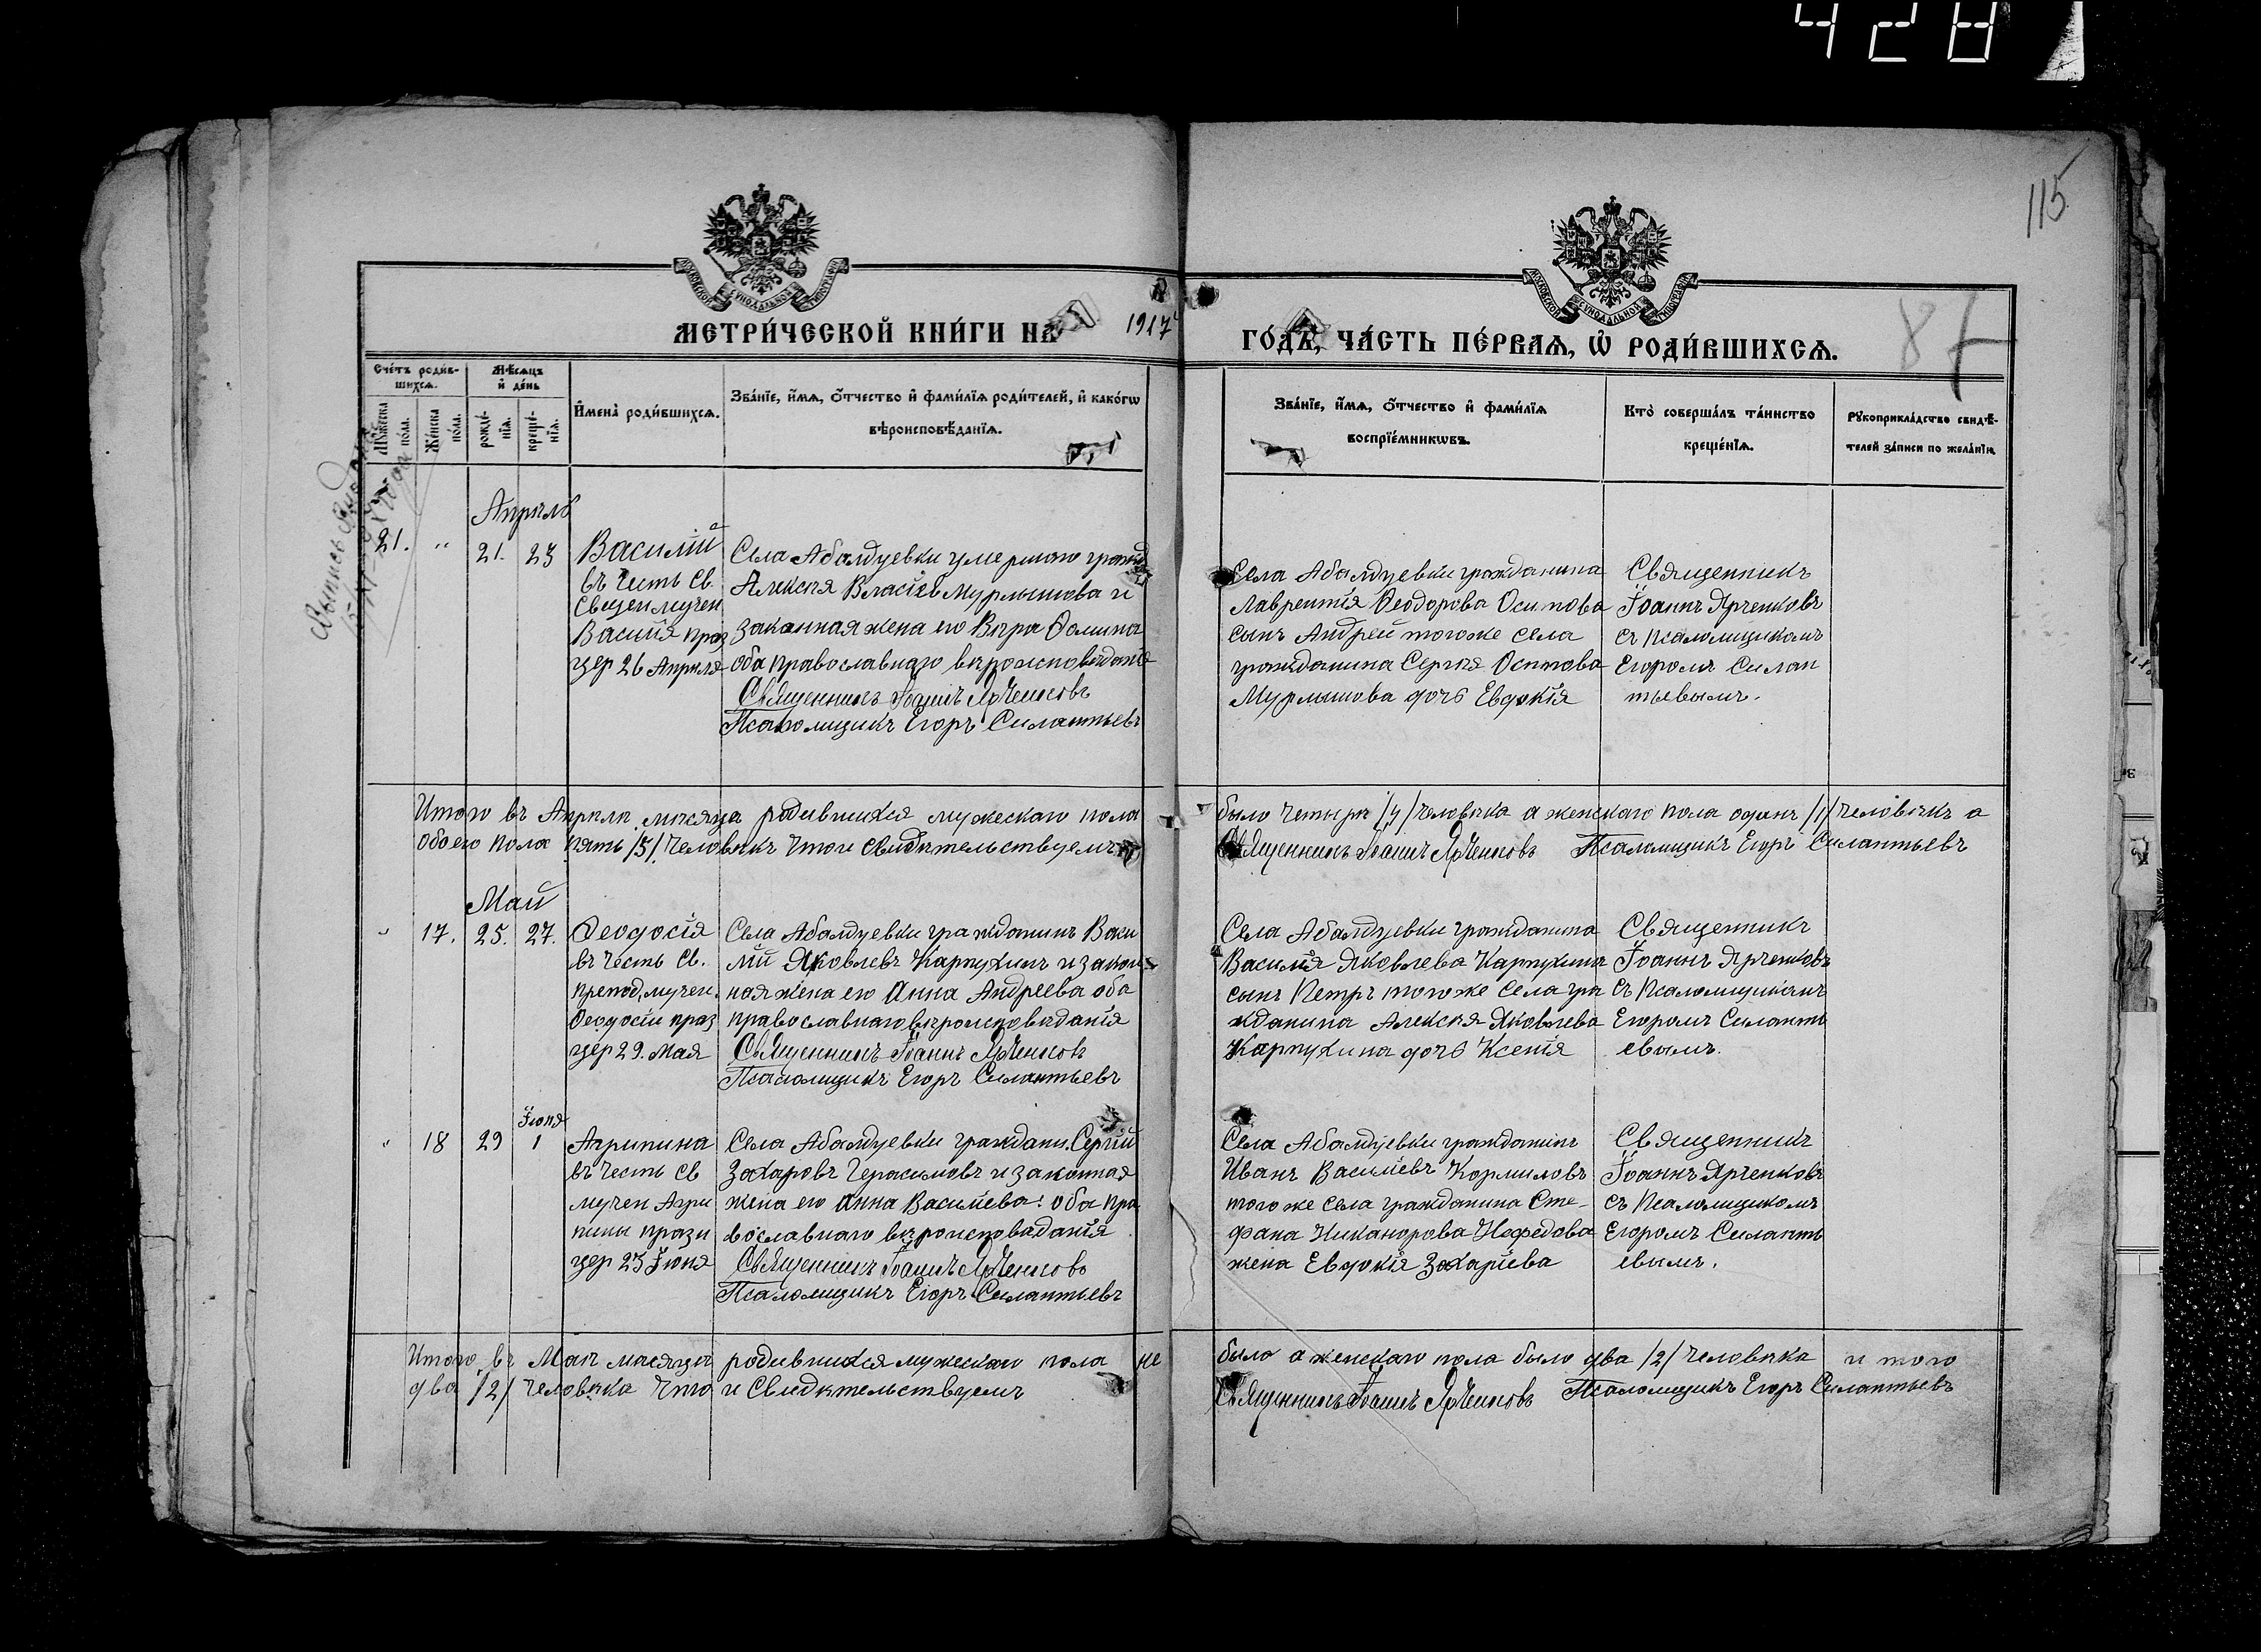 428
115
87
МОСКОВСКОЙ СѴНОДАЛЬНОЙ ТИПОГРАФІИ
МОСКОВСКОЙ СѴНОДАЛЬНОЙ ТИПОГРАФІИ
МЕТРИ́ЧЕСКОЙ КНИ́ГИ НА 1917
ГО́ДЪ, ЧА́СТЬ ПЕ́РВАѦ, Ѡ҆ РОДИ́ВШИХСѦ.
Сче́тъ роди́в-
шихсѧ.
Мꙋ́жеска по́ла.
Же́нска по́ла.
Мѣ́сѧцъ
и҆ де́нь
рожде́-
нїѧ.
креще́-
нїѧ.
И҆мена̀ роди́вшихсѧ.
Зва́нїе, и҆́мѧ, ѻ҆́тчество и҆ фами́лїѧ роди́телей, и҆ како́гѡ
вѣроисповѣ́данїѧ.
Зва́нїе, и҆́мѧ, ѻ҆́тчество и҆ фами́лїѧ
воспрїе́мникѡвъ.
Кто̀ соверша́лъ та́инство
креще́нїѧ.
Рꙋкоприкла́дство свидѣ́-
телей за́писи по жела́нїю.
Апрѣль
21. " 21. 23
Василій
въ честь Св.
Священмучен
Василія праз
цер 26 Апрѣля
Села Абалдуевки умершаго гражд
Алексѣя Власіева Мурлышова и
законная жена его Вѣра Ѳомина
оба православнаго вѣроисповѣданія
Священникъ Іоаннъ Ярченковъ
Псаломщикъ Егоръ Силантьевъ
Села Абалдуевки гражданина
Лаврентія Ѳеодорова Осипова
сынъ Андрей того же села
гражданина Сергѣя Осипова
Мурлышова дочь Евдокія
Священникъ
Іоаннъ Ярченковъ
съ псаломщикомъ
Егоромъ Силан
тьевымъ.
Итого въ Апрѣлѣ мѣсяца родившихся мужескаго пола было четыре /4/ человѣка а женскаго пола одинъ /1/ человѣкъ а
обоего пола пять /5/ человѣкъ что и свидѣтельствуемъ Священникъ Іоаннъ Ярченковъ Псаломщикъ Егоръ Силантьевъ
Май
" 17. 25. 27.
Ѳеодосія
въ честь Св.
препод. мучен.
Ѳеодосіи праз
цер 29. Мая
Села Абалдуевки гражданинъ Васи
лій Яковлевъ Карпухинъ и закон
ная жена его Анна Андреева оба
православнаго вѣроисповѣданія
Священникъ Іоаннъ Ярченковъ
Псаломщикъ Егоръ Силантьевъ
Села Абалдуевки гражданина
Василія Яковлева Карпухина
сынъ Петръ того же села гра
жданина Алексѣя Яковлева
Карпухина дочь Ксенія
Священникъ
Іоаннъ Ярченковъ
съ псаломщикомъ
Егоромъ Силанть
евымъ.
Іюня
" 18 29 1
Агрипина
въ честь Св
мучен Агри
пины празн
цер 23 Іюня
Села Абалдуевки граждани. Сергій
Захаровъ Герасимовъ и законная
жена его Анна Васильева: оба пра
вославнаго вѣроисповѣданія
Священникъ Іоаннъ Ярченковъ
Псаломщикъ Егоръ Силантьевъ
Села Абалдуевки гражданинъ
Иванъ Василіевъ Кормиловъ
того же села гражданина Сте-
фана Никанорова Нефедова
жена Евдокія Захаріева
Священникъ
Іоаннъ Ярченковъ
съ Псаломщикомъ
Егоромъ Силанть
евымъ.
Итого въ Маѣ мѣсяцѣ родившихся мужескаго пола не было а женскаго пола было два /2/ человѣка итого
два /2/ человѣка что и свидѣтельствуемъ Священникъ Іоаннъ Ярченковъ Псаломщикъ Егоръ Силантьевъ